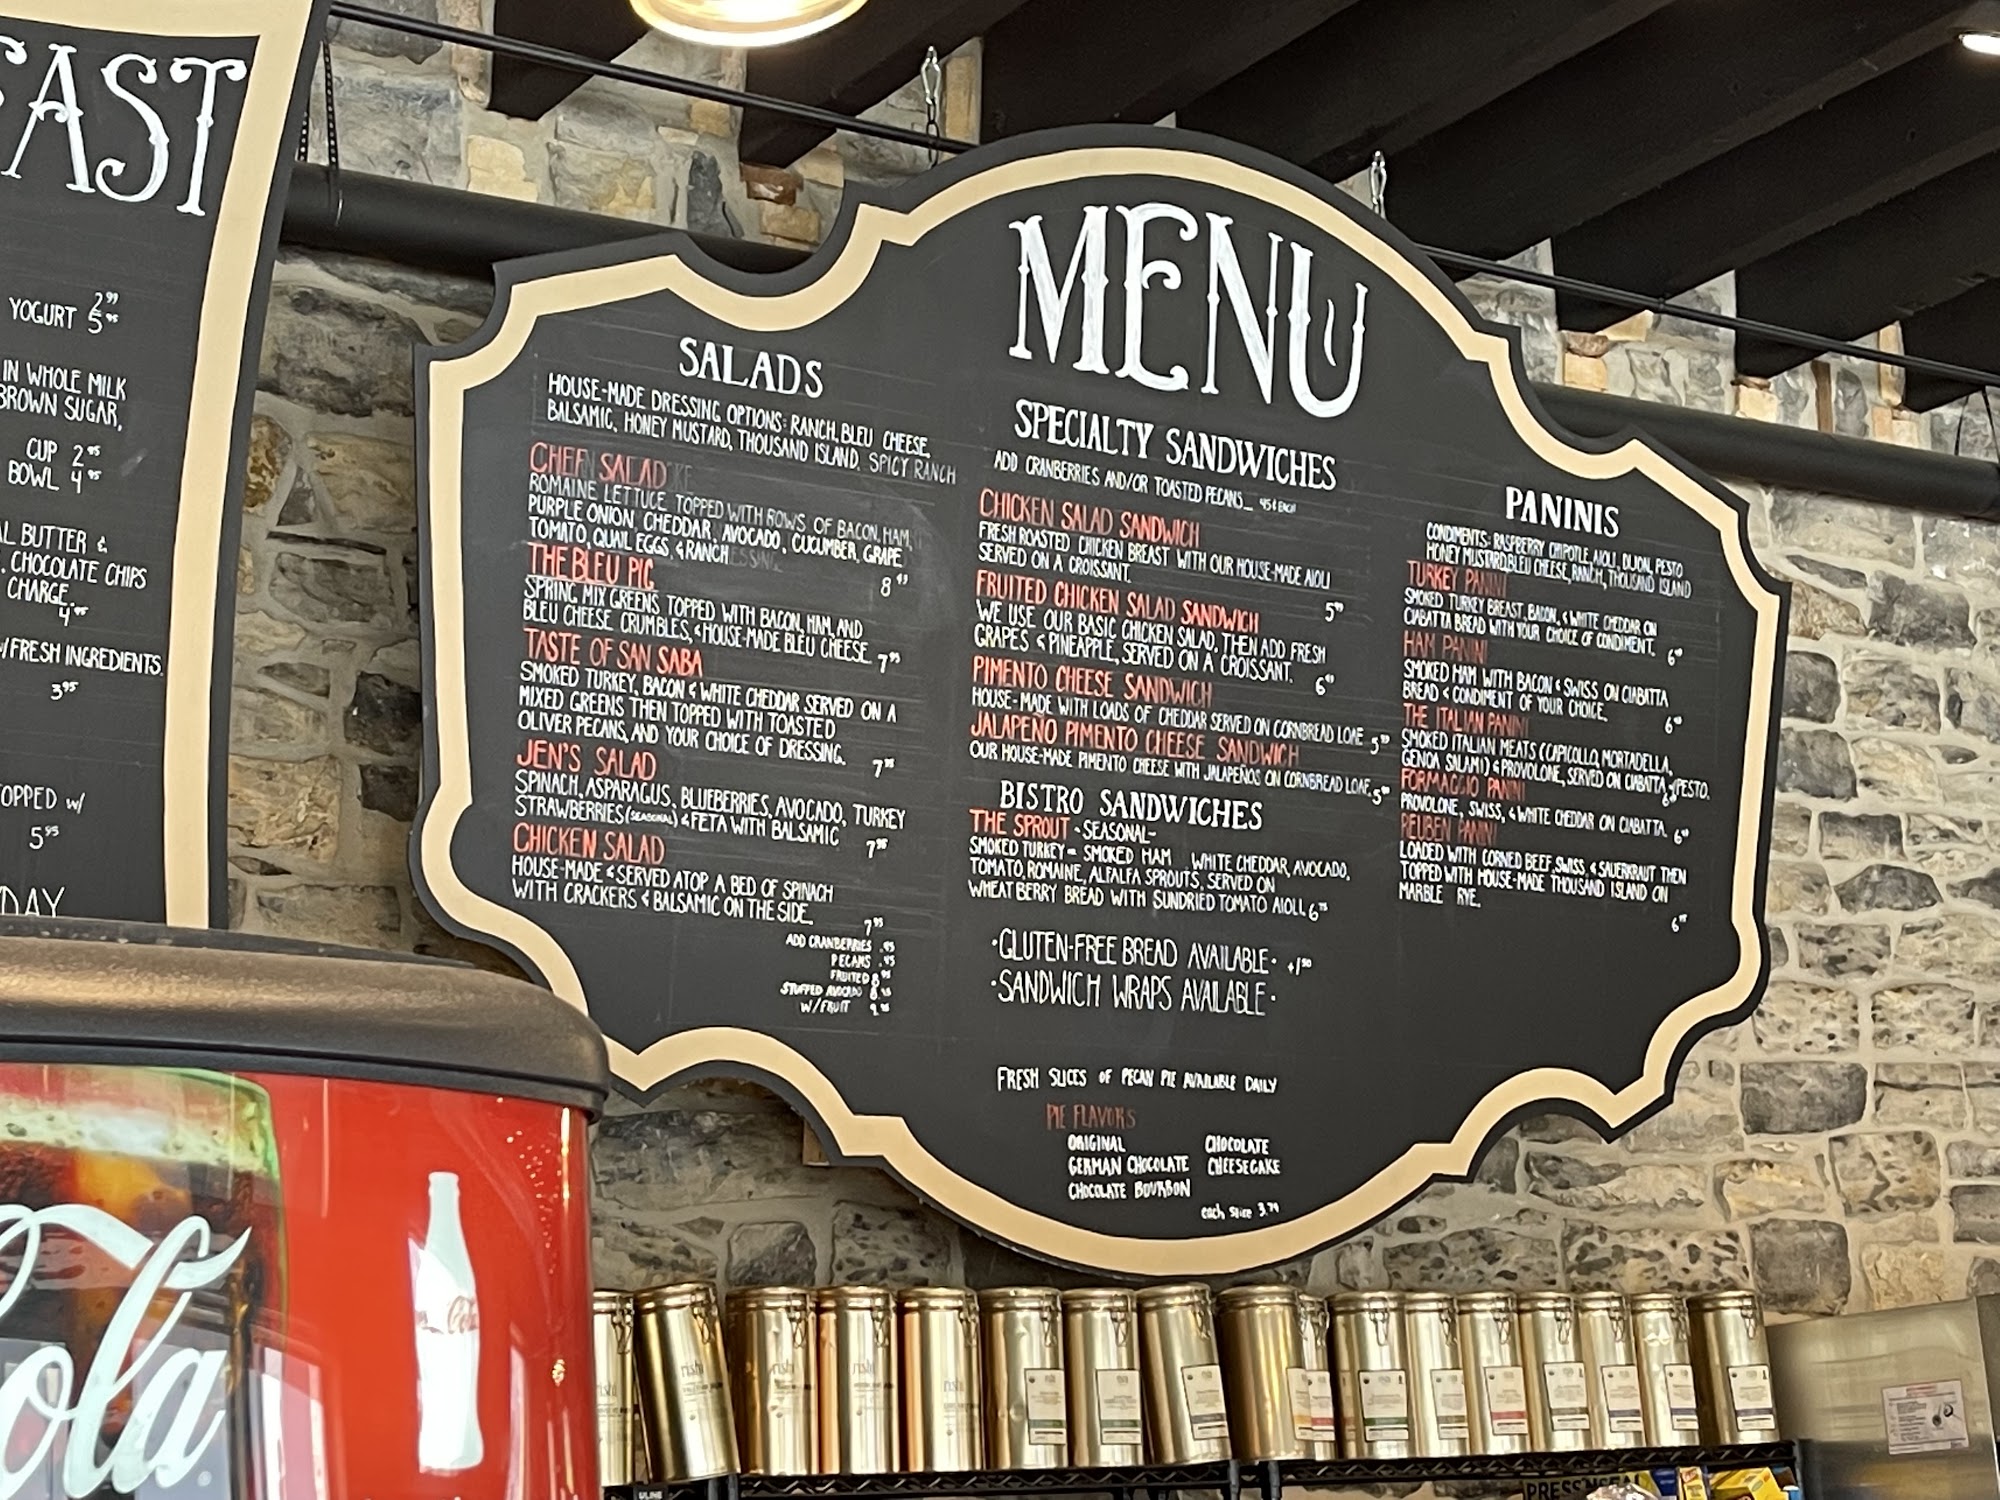 AST
YOGURT 2.99
5.95
IN WHOLE MILK
BROWN SUGAR,
CUP 2.95
BOWL 4.95
BUTTER &
CHOCOLATE CHIPS
CHARGE.
4.95
W/FRESH INGREDIENTS.
3.95
TOPPED W/
5.95
DAY
MENU
SALADS
HOUSE-MADE DRESSING OPTIONS: RANCH, BLEU CHEESE,
BALSAMIC, HONEY MUSTARD, THOUSAND ISLAND, SPICY RANCH
CHEF SALAD
ROMAINE LETTUCE TOPPED WITH ROWS OF BACON, HAM,
PURPLE ONION, CHEDDAR, AVOCADO, CUCUMBER, GRAPE
TOMATO, QUAIL EGGS, & RANCH
THE BLEU PIG
SPRING MIX GREENS TOPPED WITH BACON, HAM, AND
BLEU CHEESE CRUMBLES, & HOUSE-MADE BLEU CHEESE. 7.95
TASTE OF SAN SABA
SMOKED TURKEY, BACON & WHITE CHEDDAR SERVED ON A
MIXED GREENS THEN TOPPED WITH TOASTED
OLIVER PECANS, AND YOUR CHOICE OF DRESSING. 7.95
JEN'S SALAD
SPINACH, ASPARAGUS, BLUEBERRIES, AVOCADO, TURKEY
STRAWBERRIES (SEASONAL) & FETA WITH BALSAMIC 7.95
CHICKEN SALAD
HOUSE-MADE & SERVED ATOP A BED OF SPINACH
WITH CRACKERS & BALSAMIC ON THE SIDE. 7.95
ADD CRANBERRIES .45
PECANS .45
FRUITED 8.95
STUFFED AVOCADO 8.95
W/FRUIT 9.95
SPECIALTY SANDWICHES
ADD CRANBERRIES AND/OR TOASTED PECANS... 45¢ EACH
CHICKEN SALAD SANDWICH
FRESH ROASTED CHICKEN BREAST WITH OUR HOUSE-MADE AIOLI
SERVED ON A CROISSANT.
FRUITED CHICKEN SALAD SANDWICH
WE USE OUR BASIC CHICKEN SALAD, THEN ADD FRESH
GRAPES & PINEAPPLE, SERVED ON A CROISSANT.
PIMENTO CHEESE SANDWICH
HOUSE-MADE WITH LOADS OF CHEDDAR SERVED ON CORNBREAD LOAF
JALAPEÑO PIMENTO CHEESE SANDWICH
OUR HOUSE-MADE PIMENTO CHEESE WITH JALAPEÑOS ON CORNBREAD LOAF.
BISTRO SANDWICHES
THE SPROUT -SEASONAL-
SMOKED TURKEY - SMOKED HAM WHITE CHEDDAR, AVOCADO,
TOMATO, ROMAINE, ALFALFA SPROUTS, SERVED ON
WHEAT BERRY BREAD WITH SUNDRIED TOMATO AIOLI. 6.95
·GLUTEN-FREE BREAD AVAILABLE· +1.50
·SANDWICH WRAPS AVAILABLE·
FRESH SLICES OF PECAN PIE AVAILABLE DAILY
PIE FLAVORS
ORIGINAL CHOCOLATE
GERMAN CHOCOLATE CHEESECAKE
CHOCOLATE BOURBON
each slice 3.79
PANINIS
CONDIMENTS: RASPBERRY CHIPOTLE, AIOLI, DIJON, PESTO
HONEY MUSTARD, BLEU CHEESE, RANCH, THOUSAND ISLAND
TURKEY PANINI
SMOKED TURKEY BREAST, BACON, & WHITE CHEDDAR ON
CIABATTA BREAD WITH YOUR CHOICE OF CONDIMENT.
HAM PANINI
SMOKED HAM WITH BACON & SWISS ON CIABATTA
BREAD & CONDIMENT OF YOUR CHOICE.
THE ITALIAN PANINI
SMOKED ITALIAN MEATS (CAPICOLLO, MORTADELLA,
GENOA SALAMI) & PROVOLONE, SERVED ON CIABATTA & PESTO.
FORMAGGIO PANINI
PROVOLONE, SWISS, & WHITE CHEDDAR ON CIABATTA.
REUBEN PANINI
LOADED WITH CORNED BEEF, SWISS, & SAUERKRAUT THEN
TOPPED WITH HOUSE-MADE THOUSAND ISLAND ON
MARBLE RYE.
ola
Coca-Cola
rishi
rishi
rishi
ULINE
PRESS'N SEAL